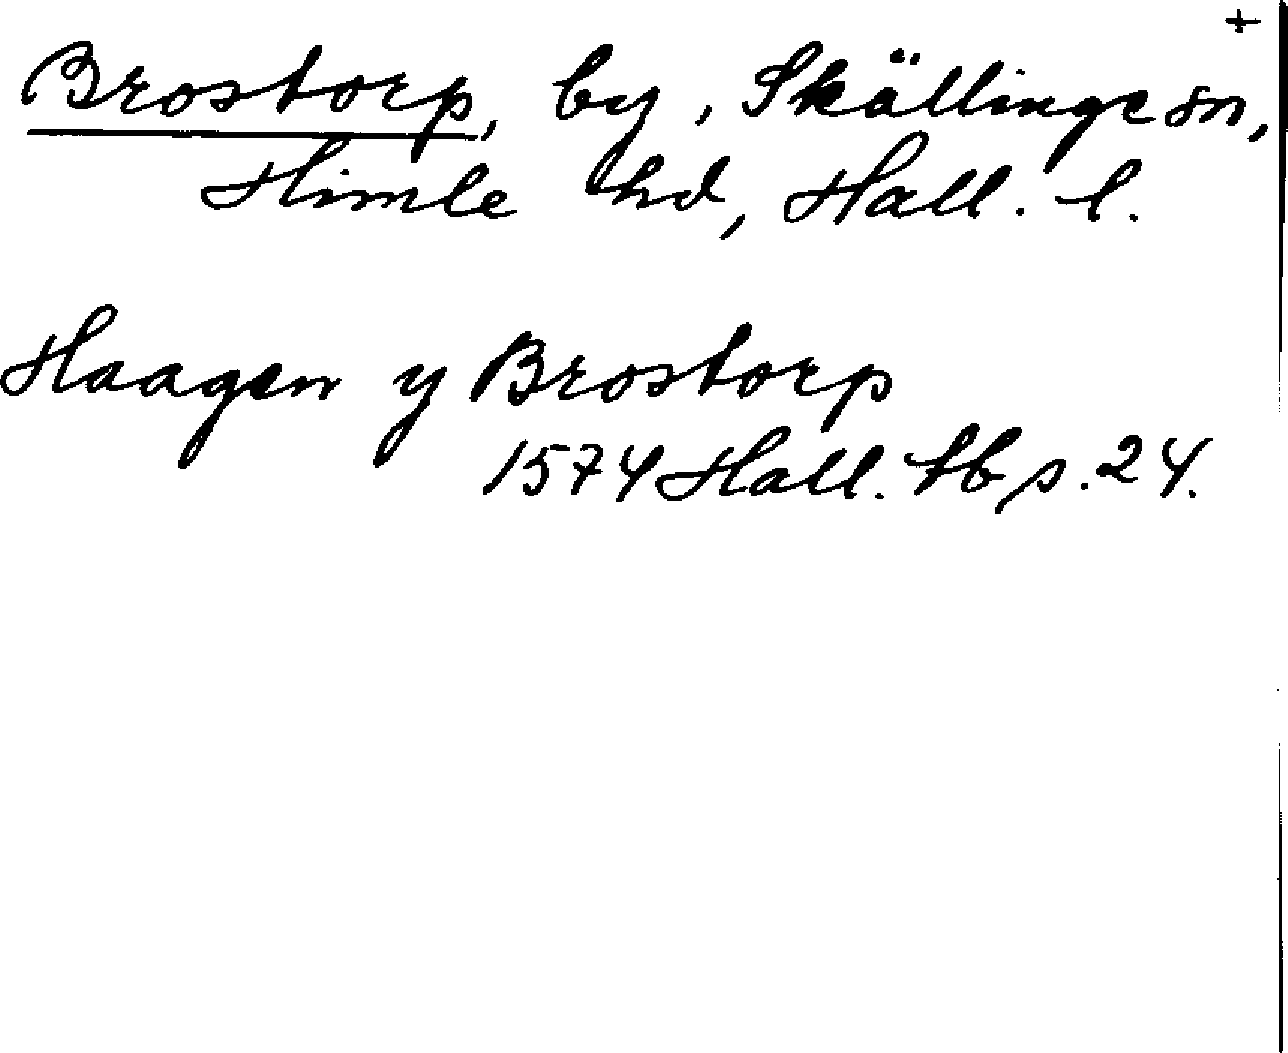 +
Brostorp, by, Skällinge sn,
Himle hd, Hall. l.
Haagen y Brostorp
1574 Hall. tb s. 24.